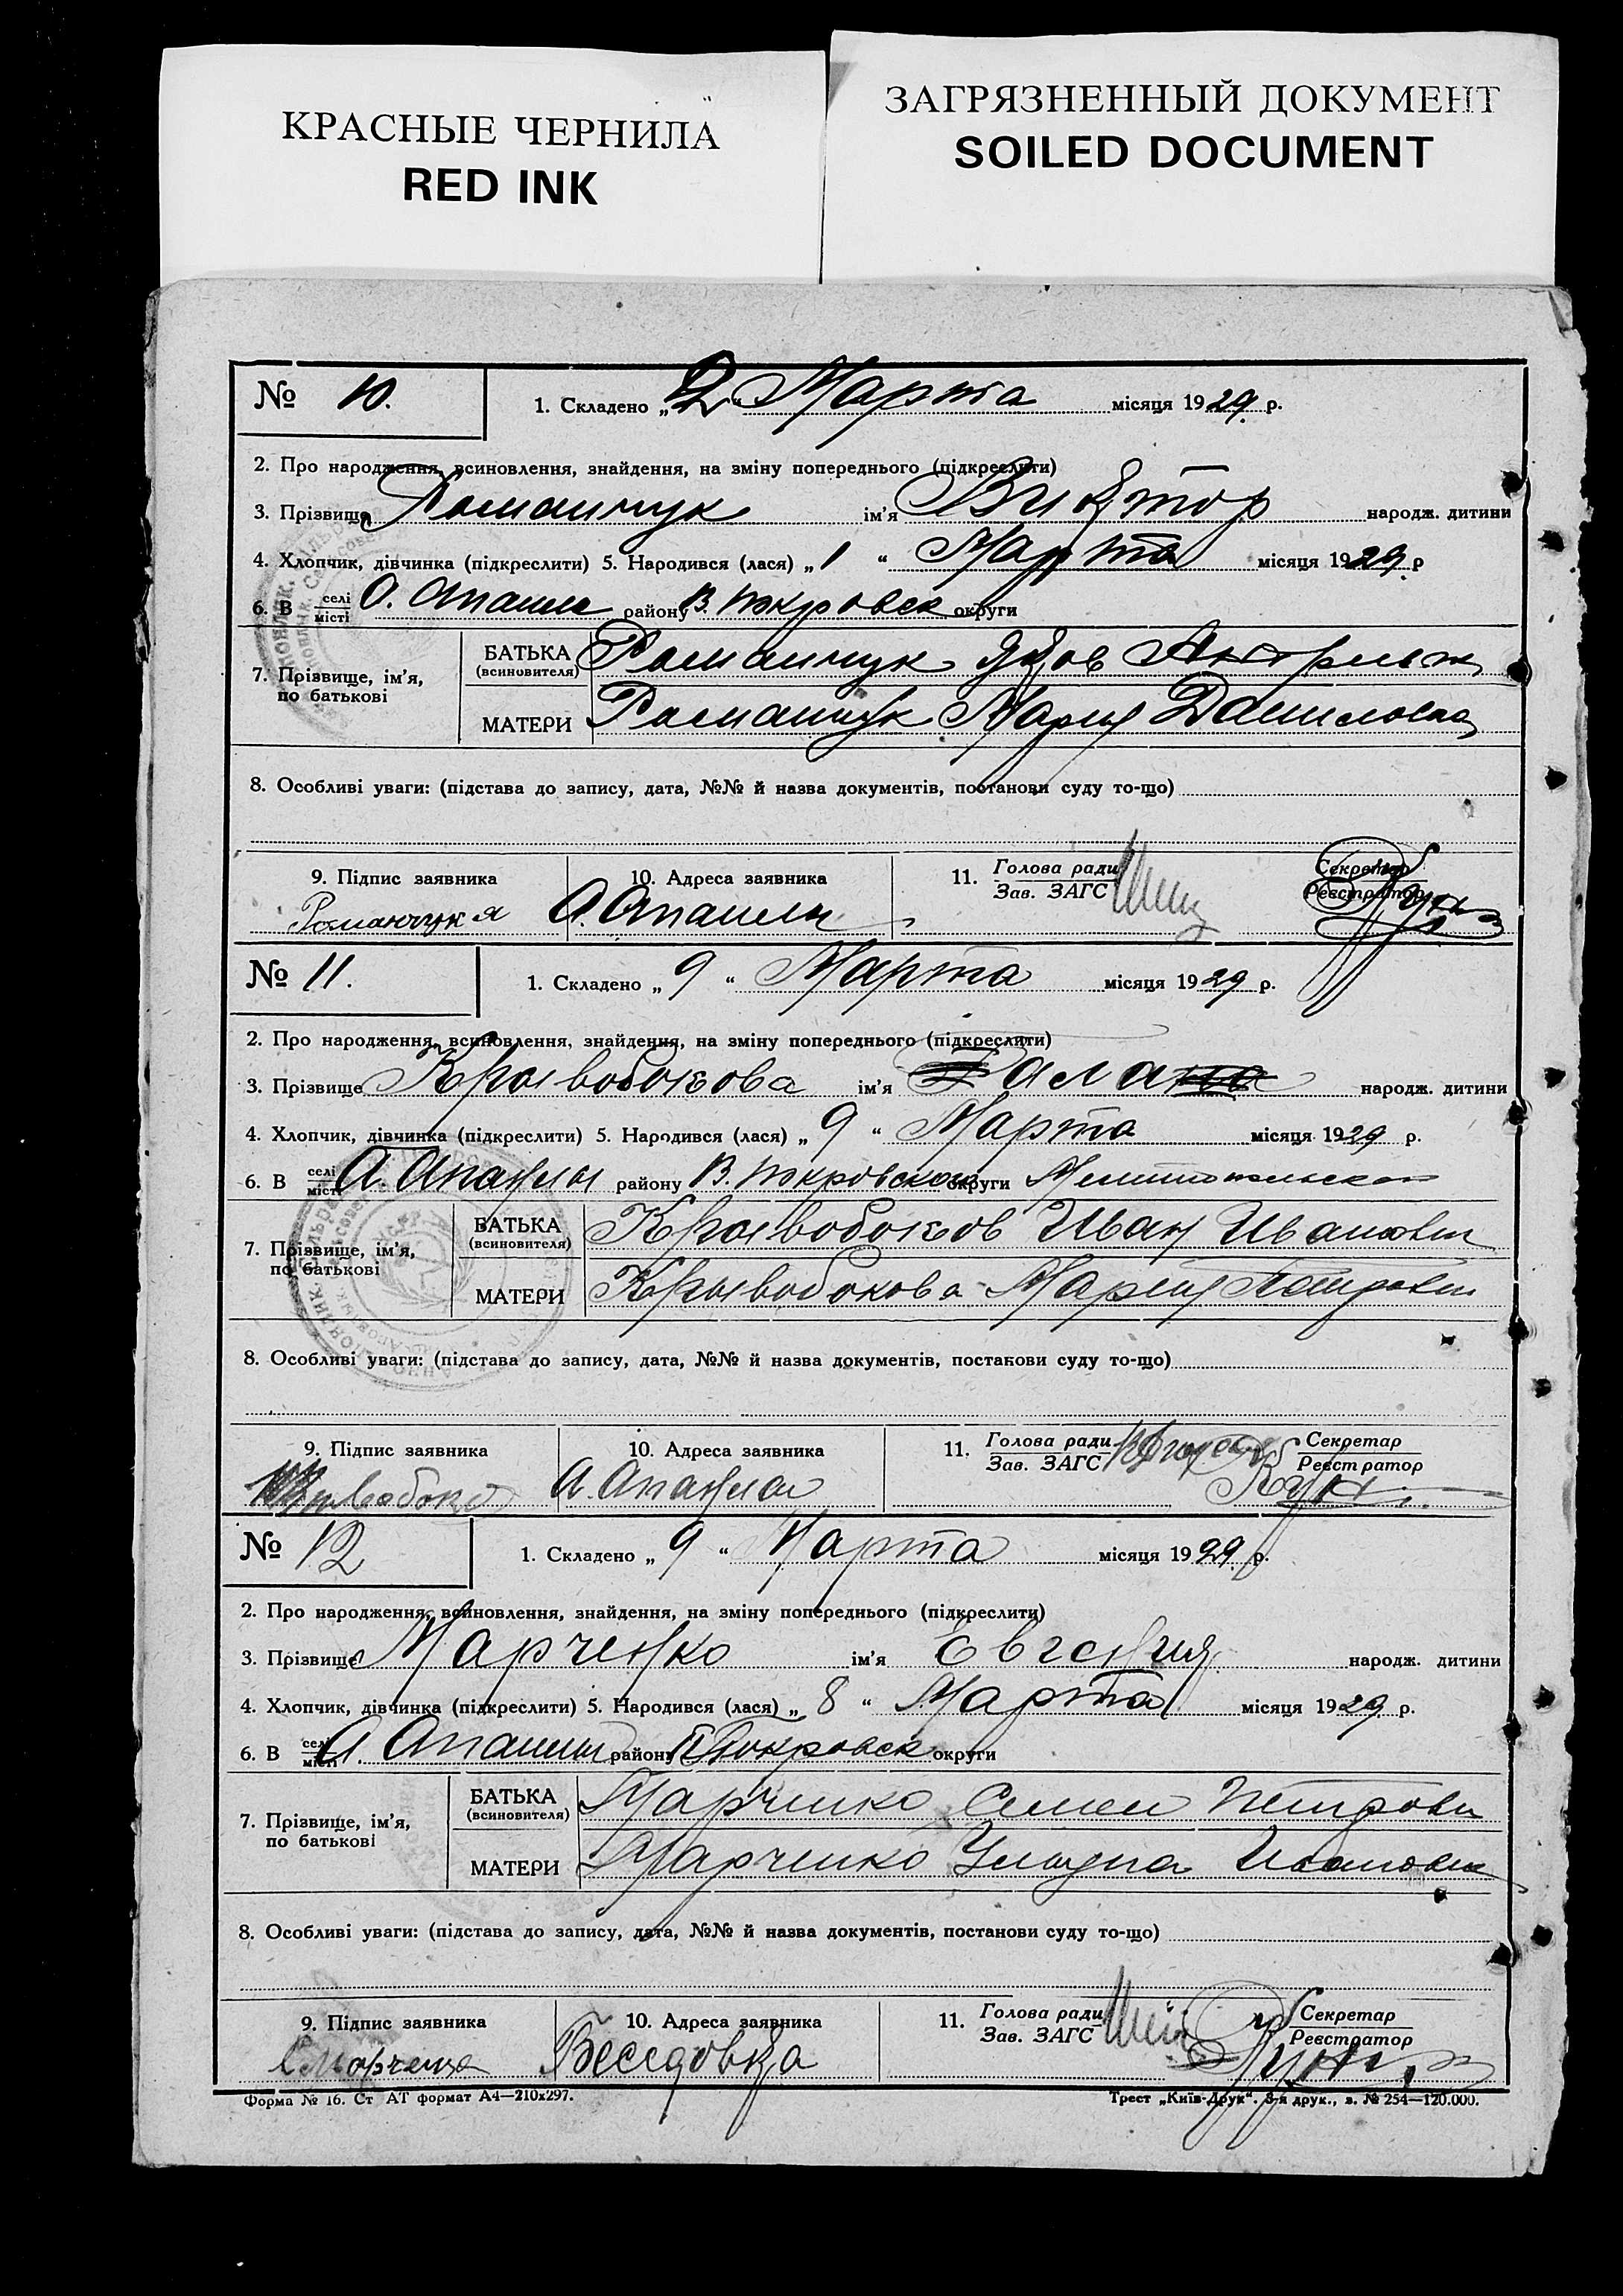 КРАСНЫЕ ЧЕРНИЛА
RED INK
ЗАГРЯЗНЕННЫЙ ДОКУМЕНТ
SOILED DOCUMENT
№ 10. 1. Складено „2“ Марта місяця 1929 р.
2. Про народження, всиновлення, знайдення, на зміну попереднього (підкреслити)
3. Прізвище Романчук ім'я Виктор народж. дитини
4. Хлопчик, дівчинка (підкреслити) 5. Народився (лася) „1“ Марта місяця 1929 р
6. В селі місті району В. Покровск округи
7. Прізвище, ім'я, по батькові
БАТЬКА (всиновителя) Романчук Яков
МАТЕРИ Романчук Мария Даниловна
8. Особливі уваги: (підстава до запису, дата, №№ й назва документів, постанови суду то-що)
9. Підпис заявника 10. Адреса заявника 11. Голова ради Зав. ЗАГС Секретар Реєстратор
Романчук Я
№ 11. 1. Складено „9“ Марта місяця 1929 р.
2. Про народження, всиновлення, знайдення, на зміну попереднього (підкреслити)
3. Прізвище Крывобокова ім'я народж. дитини
4. Хлопчик, дівчинка (підкреслити) 5. Народився (лася) „9“ Марта місяця 1929 р.
6. В селі місті А. Апанлы району В. Покровской округи Мелитопольской
7. Прізвище, ім'я, по батькові
БАТЬКА (всиновителя) Крывобоков Иван Иванович
МАТЕРИ Крывобокова Мария
8. Особливі уваги: (підстава до запису, дата, №№ й назва документів, постанови суду то-що)
9. Підпис заявника 10. Адреса заявника 11. Голова ради Зав. ЗАГС Секретар Реєстратор
А. Апанлы
№ 12 1. Складено „9“ Марта місяця 1929 р.
2. Про народження, всиновлення, знайдення, на зміну попереднього (підкреслити)
3. Прізвище Марченко ім'я Евгения народж. дитини
4. Хлопчик, дівчинка (підкреслити) 5. Народився (лася) „8“ Марта місяця 1929 р.
6. В селі місті А. Апанлы району Покровск округи
7. Прізвище, ім'я, по батькові
БАТЬКА (всиновителя) Марченко Семен Петрович
МАТЕРИ Марченко
8. Особливі уваги: (підстава до запису, дата, №№ й назва документів, постанови суду то-що)
9. Підпис заявника 10. Адреса заявника 11. Голова ради Зав. ЗАГС Секретар Реєстратор
Беседовка
Форма № 16. Ст АТ формат А4—210х297. Трест „Київ-Друк“. 3-я друк., з. № 254—120.000.